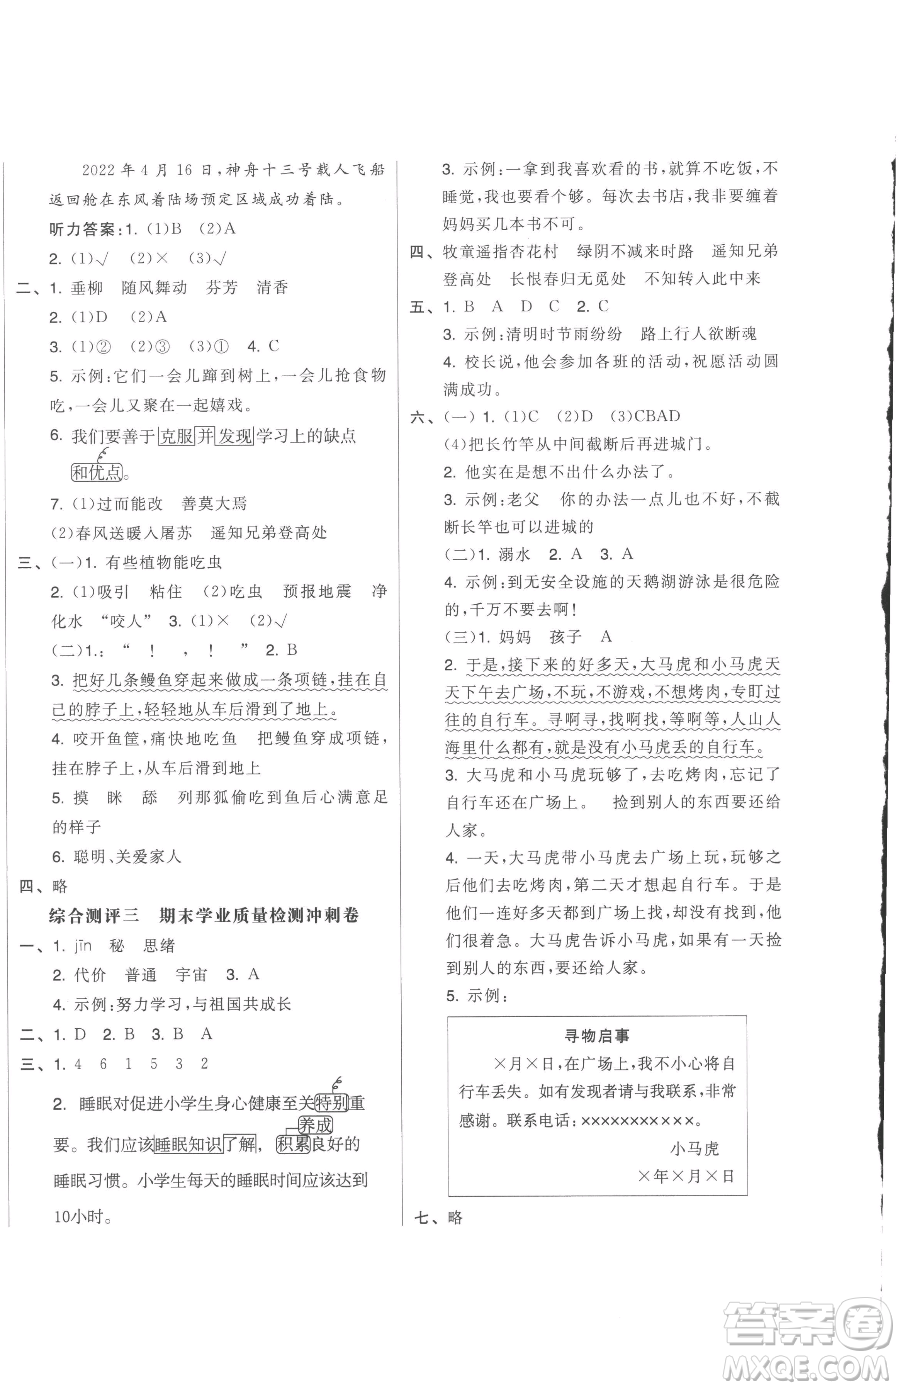 2022年4月16日,神舟十三号载人飞船
返回舱在东风着陆场预定区域成功着陆。
听力答案:1. (1)B (2)A
2. (1)√ (2)× (3)√
二、1. 垂柳 随风舞动 芬芳 清香
2. (1)D (2)A
3. (1)② (2)③ (3)① 4. C
5. 示例:它们一会儿蹿到树上,一会儿抢食物
吃,一会儿又聚在一起嬉戏。
6. 我们要善于克服并发现学习上的缺点
和优点。
7. (1)过而能改 善莫大焉
(2)春风送暖入屠苏 遥知兄弟登高处
三、(一)1. 有些植物能吃虫
2. (1)吸引 粘住 (2)吃虫 预报地震 净
化水 “咬人” 3. (1)× (2)√
(二)1.: “ ! , !” 2. B
3. 把好几条鳗鱼穿起来做成一条项链,挂在自
己的脖子上,轻轻地从车后滑到了地上。
4. 咬开鱼筐,痛快地吃鱼 把鳗鱼穿成项链,
挂在脖子上,从车后滑到地上
5. 摸 眯 舔 列那狐偷吃到鱼后心满意足
的样子
6. 聪明、关爱家人
四、略
综合测评三 期末学业质量检测冲刺卷
一、1. jīn 秘 思绪
2. 代价 普通 宇宙 3. A
4. 示例:努力学习,与祖国共成长
二、1. D 2. B 3. B A
三、1. 4 6 1 5 3 2
2. 睡眠对促进小学生身心健康至关特别重
养成
要。我们应该睡眠知识了解,积累良好的
睡眠习惯。小学生每天的睡眠时间应该达到
10小时。
3. 示例:一拿到我喜欢看的书,我可以不吃饭,不
睡觉,我就想一次看个够。每次去书店,我都要缠着
妈妈买几本书不可。
四、牧童遥指杏花村 绿阴不减来时路 遥知兄弟
登高处 长恨春归无觅处 不知转入此中来
五、1. B A D C 2. C
3. 示例:清明时节雨纷纷 路上行人欲断魂
4. 校长说,他会参加各班的活动,祝愿活动圆
满成功。
六、(一)1. (1)C (2)D (3)CBAD
(4)把长竹竿从中间截断后再进城门。
2. 他实在是想不出什么办法了。
3. 示例:老父 你的办法一点儿也不可取,不截
断长竿也可以进城的
(二)1. 溺水 2. A 3. A
4. 示例:到无安全设施的天鹅湖游泳是很危险
的,千万不要去啊!
(三)1. 妈妈 孩子 A
2. 于是,接下来的好多天,大马虎和小马虎天
天下午去广场,不玩,不游戏,不想烤肉,专盯过
往的自行车。寻啊寻,找啊找,等啊等,人山人
海里什么都有,就是没有小马虎丢的自行车。
3. 大马虎和小马虎玩够了,去吃烤肉,忘记了
自行车还在广场上。 捡到别人的东西要还给
人家。
4. 一天,大马虎带小马虎去广场上玩,玩够后
一起去吃烤肉,第二天才想起自行车。自行车
没有了,他们很着急。大马虎告诉小马虎,如果捡
到别人的东西,要还给人家。
5. 示例:
寻物启事
×月×日,在广场上,我不小心将
自行车丢失。如有发现者请与我联系,非常
感谢。联系电话:×××××××××××。
小马虎
×年×月×日
七、略
答案圈
MXQE.COM